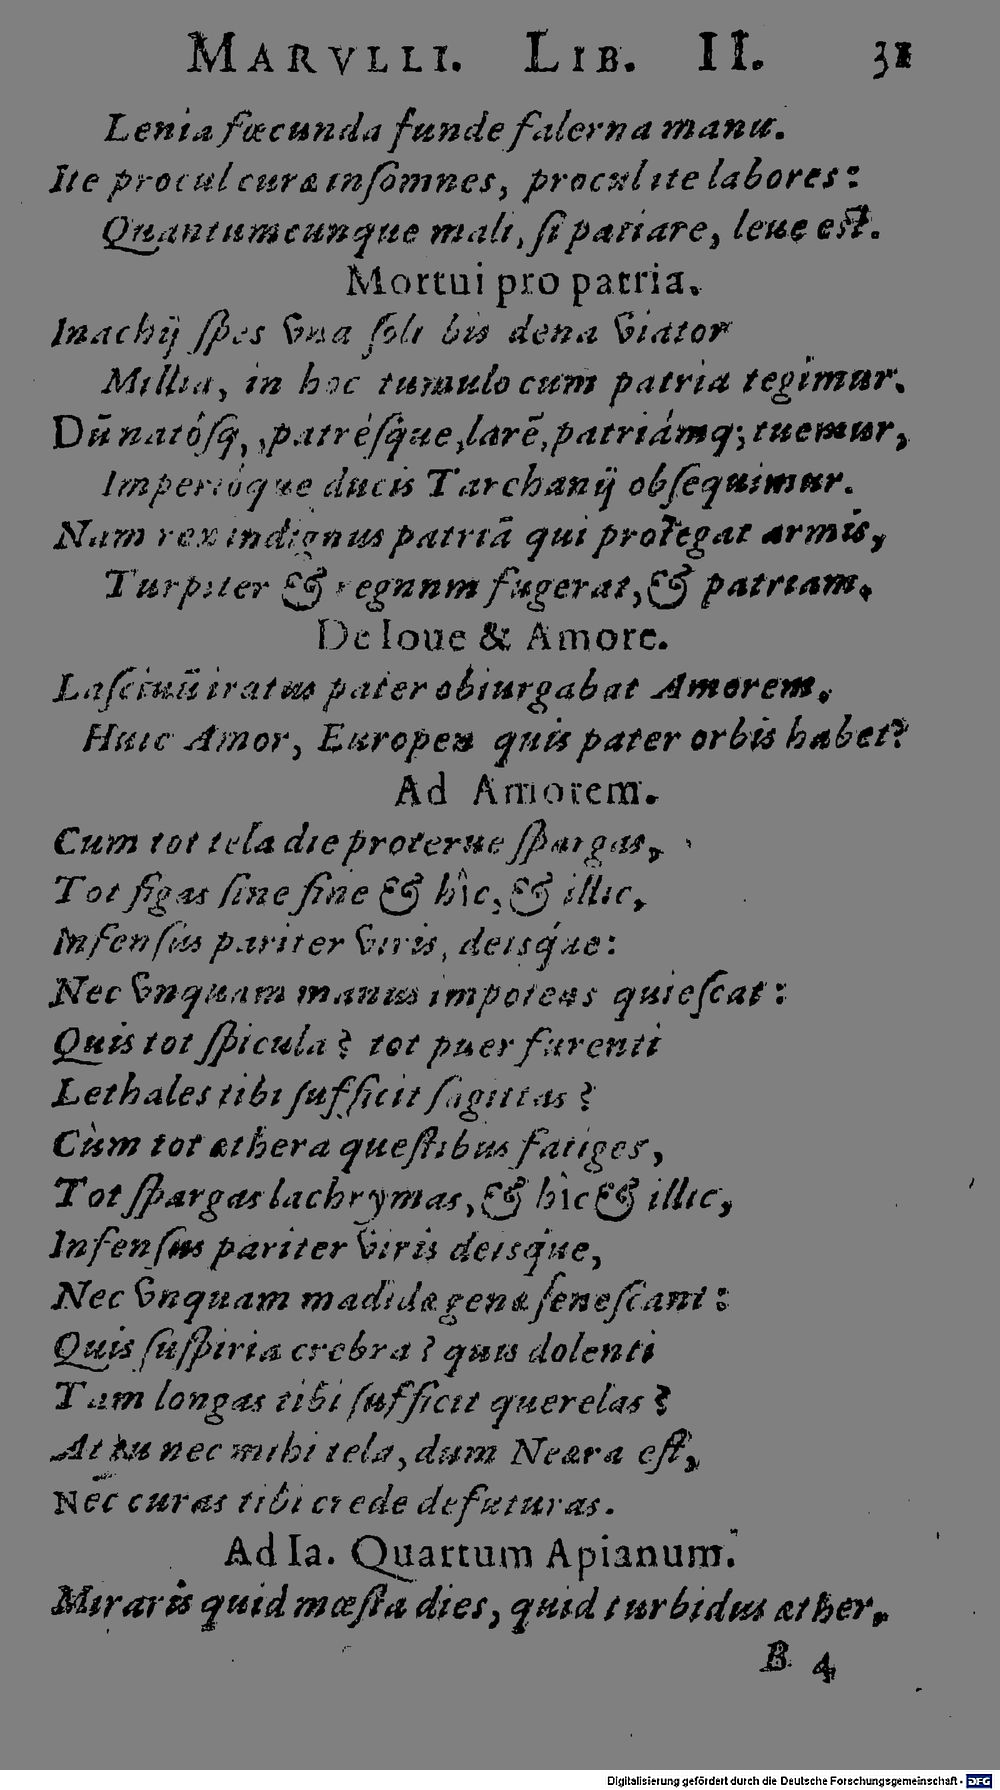 MARVLLI. LIB. II. 31
Lenia fœcunda funde falerna manu.
Ite procul curæ inſomnes, procul ite labores:
Quantumcunque mali, ſi patiare, leue est.
Mortui pro patria.
Inachij ſpes vna ſoli bis dena viator
Millia, in hoc tumulo cum patria tegimur.
Dũ natóſq, patréſque, larẽ, patriámq; tuemur,
Imperióque ducis Tarchanij obſequimur.
Nam rex indignus patriã qui protegat armis,
Turpiter & regnnm fugerat, & patriam.
De Ioue & Amore.
Laſciuũ iratus pater obiurgabat Amorem.
Huic Amor, Europen quis pater orbis habet?
Ad Amorem.
Cum tot tela die proterue ſpargas,
Tot figas ſine fine & hîc, & illic,
Infenſus pariter viris, deisq́ue:
Nec vnquam manus impotens quieſcat:
Quis tot ſpicula? tot puer furenti
Lethales tibi ſufficit ſagittas?
Cùm tot æthera queſtibus fatiges,
Tot ſpargas lachrymas, & hìc & illic,
Infenſus pariter viris deisq́ue,
Nec vnquam madidæ genæ ſeneſcant:
Quis ſuſpiria crebra? quis dolenti
Tam longas tibi ſufficit querelas?
At tu nec mihi tela, dum Neæra eſt,
Nec curas tibi crede defuturas.
Ad Ia. Quartum Apianum.
Miraris quid mœſta dies, quid turbidus æther.
B 4
Digitalisierung gefördert durch die Deutsche Forschungsgemeinschaft - DFG